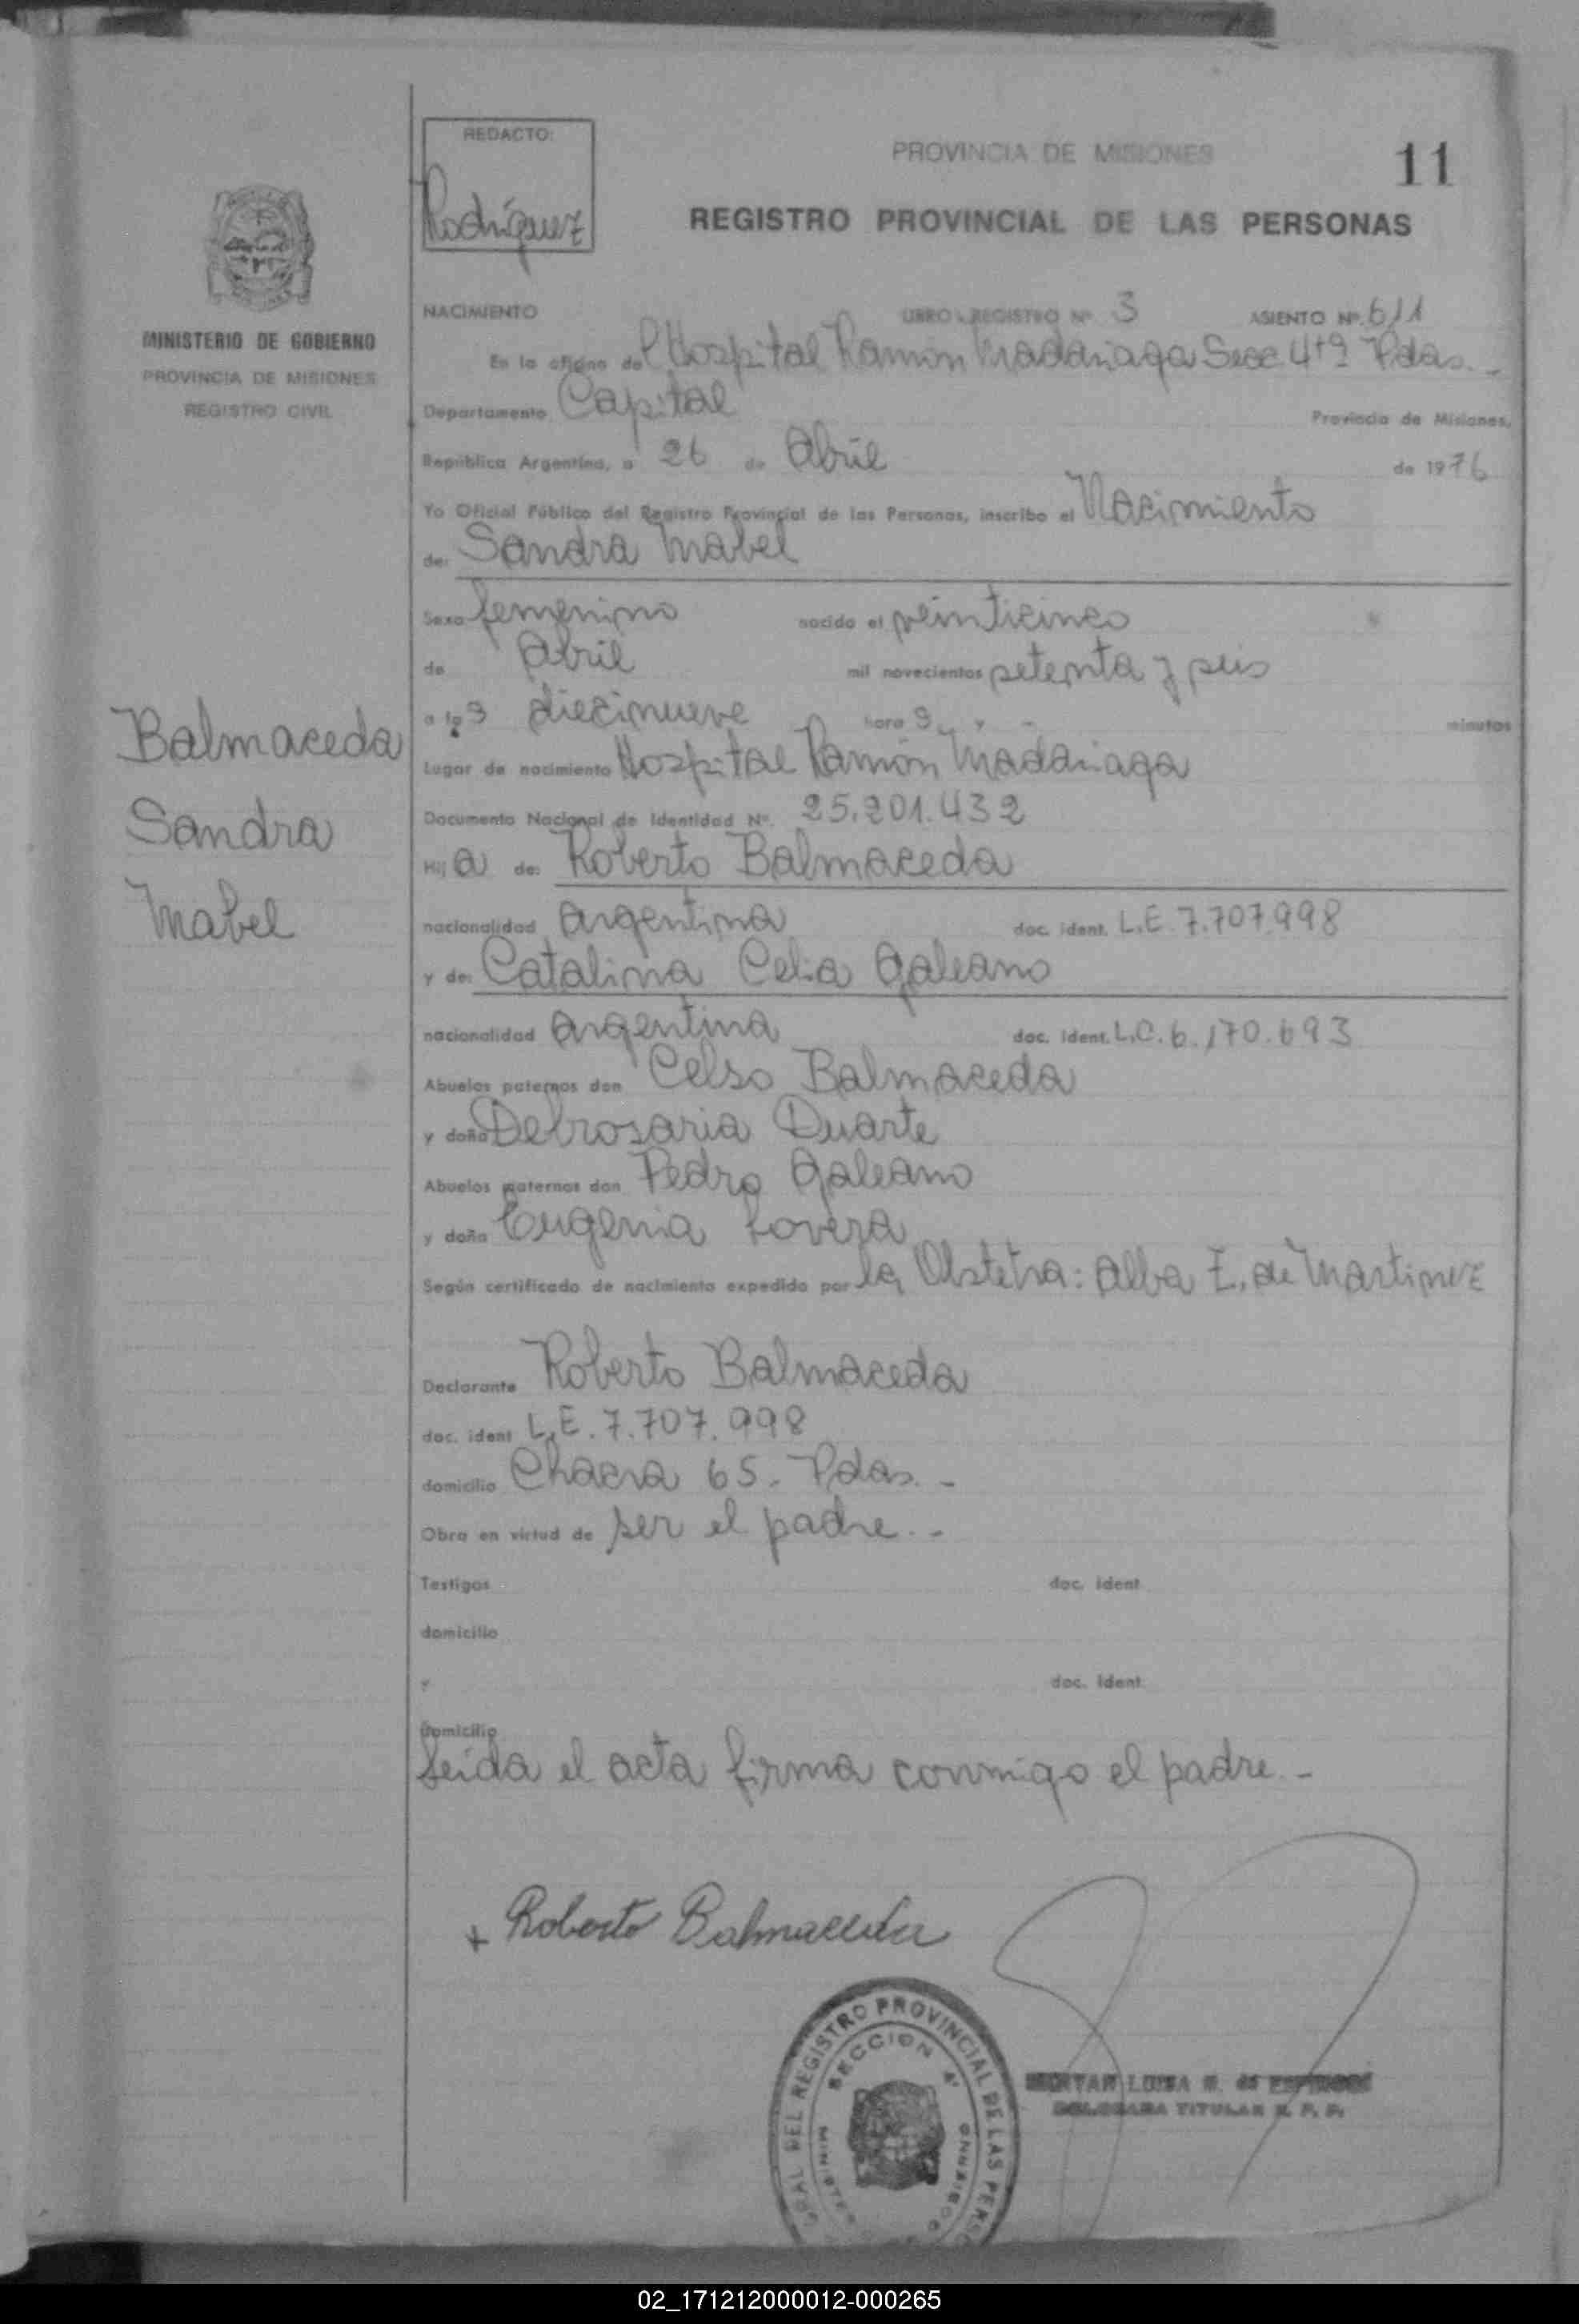 REDACTO:
Rodríguez
PROVINCIA DE MISIONES
11
REGISTRO PROVINCIAL DE LAS PERSONAS
MINISTERIO DE GOBIERNO
PROVINCIA DE MISIONES
REGISTRO CIVIL
NACIMIENTO LIBRO - REGISTRO Nº 3 ASIENTO Nº 611
En la oficina del Hospital Ramón Madariaga Secc. 4ta Pdas. -
Departamento Capital Provincia de Misiones,
República Argentina, a 26 de Abril de 1976
Yo Oficial Público del Registro Provincial de las Personas, inscribo el Nacimiento
de: Sandra Mabel
Sexo femenino nacido el veinticinco
de Abril mil novecientos setenta y seis
a las diecinueve horas y - minutos
Lugar de nacimiento Hospital Ramón Madariaga
Documento Nacional de Identidad Nº. 25.201.432
Hija de: Roberto Balmaceda
nacionalidad argentina doc. ident. L.E. 7.707.998
y de: Catalina Celia Galeano
nacionalidad argentina doc. ident. L.C. 6.170.693
Abuelos paternos don Celso Balmaceda
y doña Delrosaria Duarte
Abuelos maternos don Pedro Galeano
y doña Eugenia Lovera
Según certificado de nacimiento expedido por la Obstetra: Alba Z. de Martinez
Balmaceda
Sandra
Mabel
Declarante Roberto Balmaceda
doc. ident L.E. 7.707.998
domicilio Chacra 65. Pdas. -
Obra en virtud de ser el padre. -
Testigos doc. ident
domicilio
y doc. ident.
domicilio
Leída el acta firma conmigo el padre. -
+ Roberto Balmaceda
DEL REGISTRO PROVINCIAL DE LAS
SECCION 4ª
LUISA
TITULAR R. P. P.
02_171212000012-000265